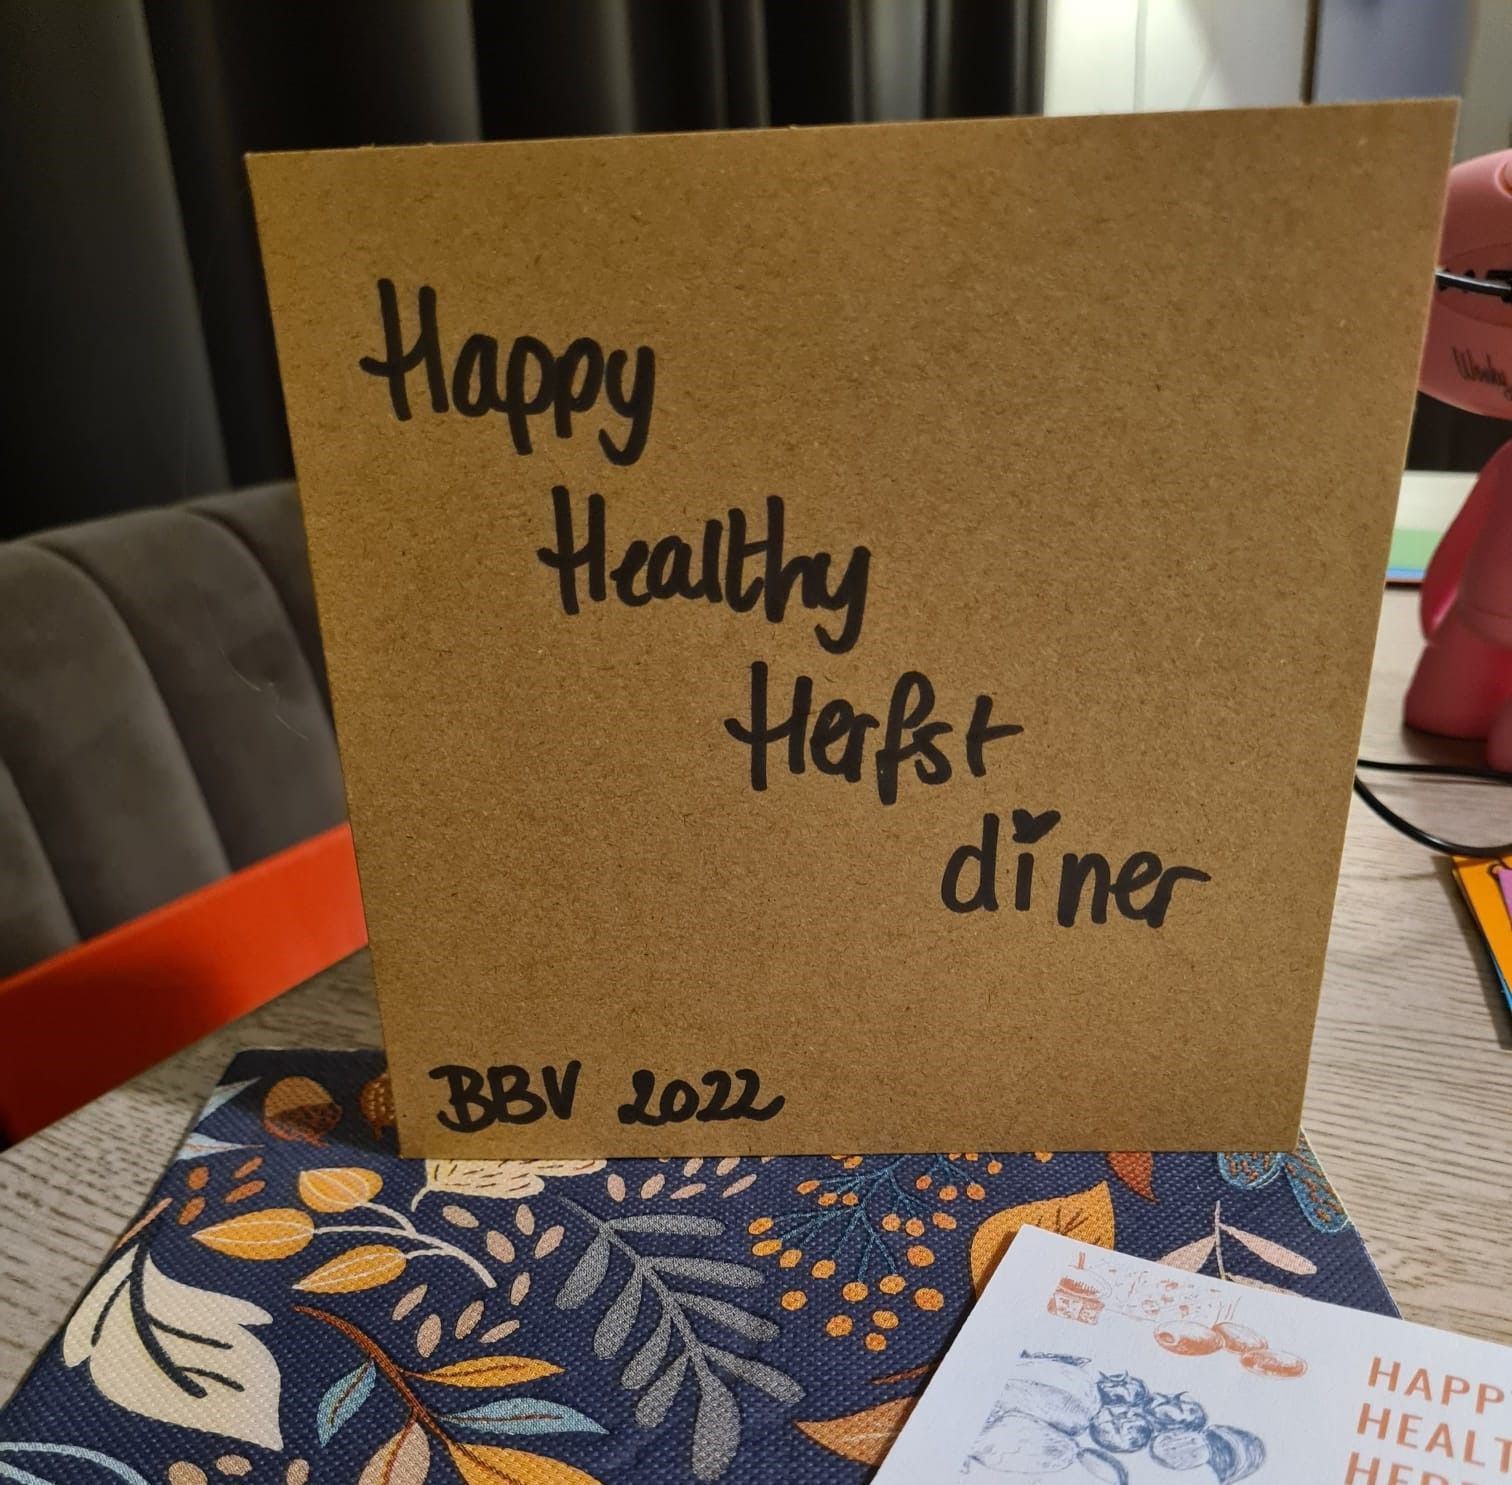 Happy
Healthy
Herfst
diner
BBV 2022
HAPP
HEALT